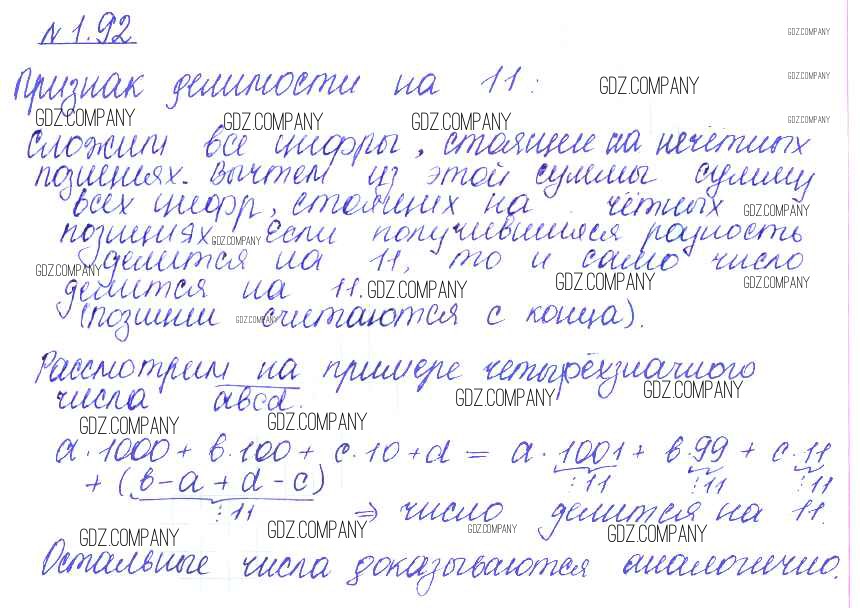 № 1.92
GDZ.COMPANY
Признак делимости на 11:
GDZ.COMPANY
GDZ.COMPANY
GDZ.COMPANY
GDZ.COMPANY
GDZ.COMPANY
GDZ.COMPANY
Сложим все цифры, стоящие на нечётных
позициях. Вычтем из этой суммы сумму
всех цифр, стоящих на чётных
GDZ.COMPANY
позициях. Если получившиеся разность
GDZ.COMPANY
делится на 11, то и само число
GDZ.COMPANY
делится на 11.
GDZ.COMPANY
GDZ.COMPANY
GDZ.COMPANY
(позиции считаются с конца).
GDZ.COMPANY
Рассмотрим на примере четырёхзначного
числа abcd.
GDZ.COMPANY
GDZ.COMPANY
GDZ.COMPANY
GDZ.COMPANY
a·1000 + b·100 + c·10 + d = a·1001 + b·99 + c·11
+ (b-a+d-c) ⋮11 ⋮11 ⋮11
⋮11 ⇒ число делится на 11.
GDZ.COMPANY
GDZ.COMPANY
GDZ.COMPANY
GDZ.COMPANY
Остальные числа доказываются аналогично.